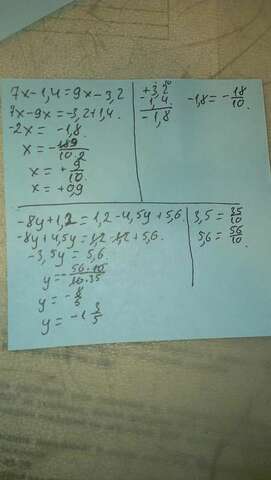 7x-1,4=9x-3,2
7x-9x=-3,2+1,4.
-2x = -1,8.
x = -189/10·2
x = +9/10.
x = +0,9
+3,2
-1,4.
-1,8
-1,8 = -18/10.
-8y+1,2=1,2-4,5y+5,6.
-8y+4,5y=1,2-1,2+5,6.
-3,5y=5,6.
y=-56·10/10·35
y=-8/5
y=-1 3/5
3,5=35/10
5,6=56/10.